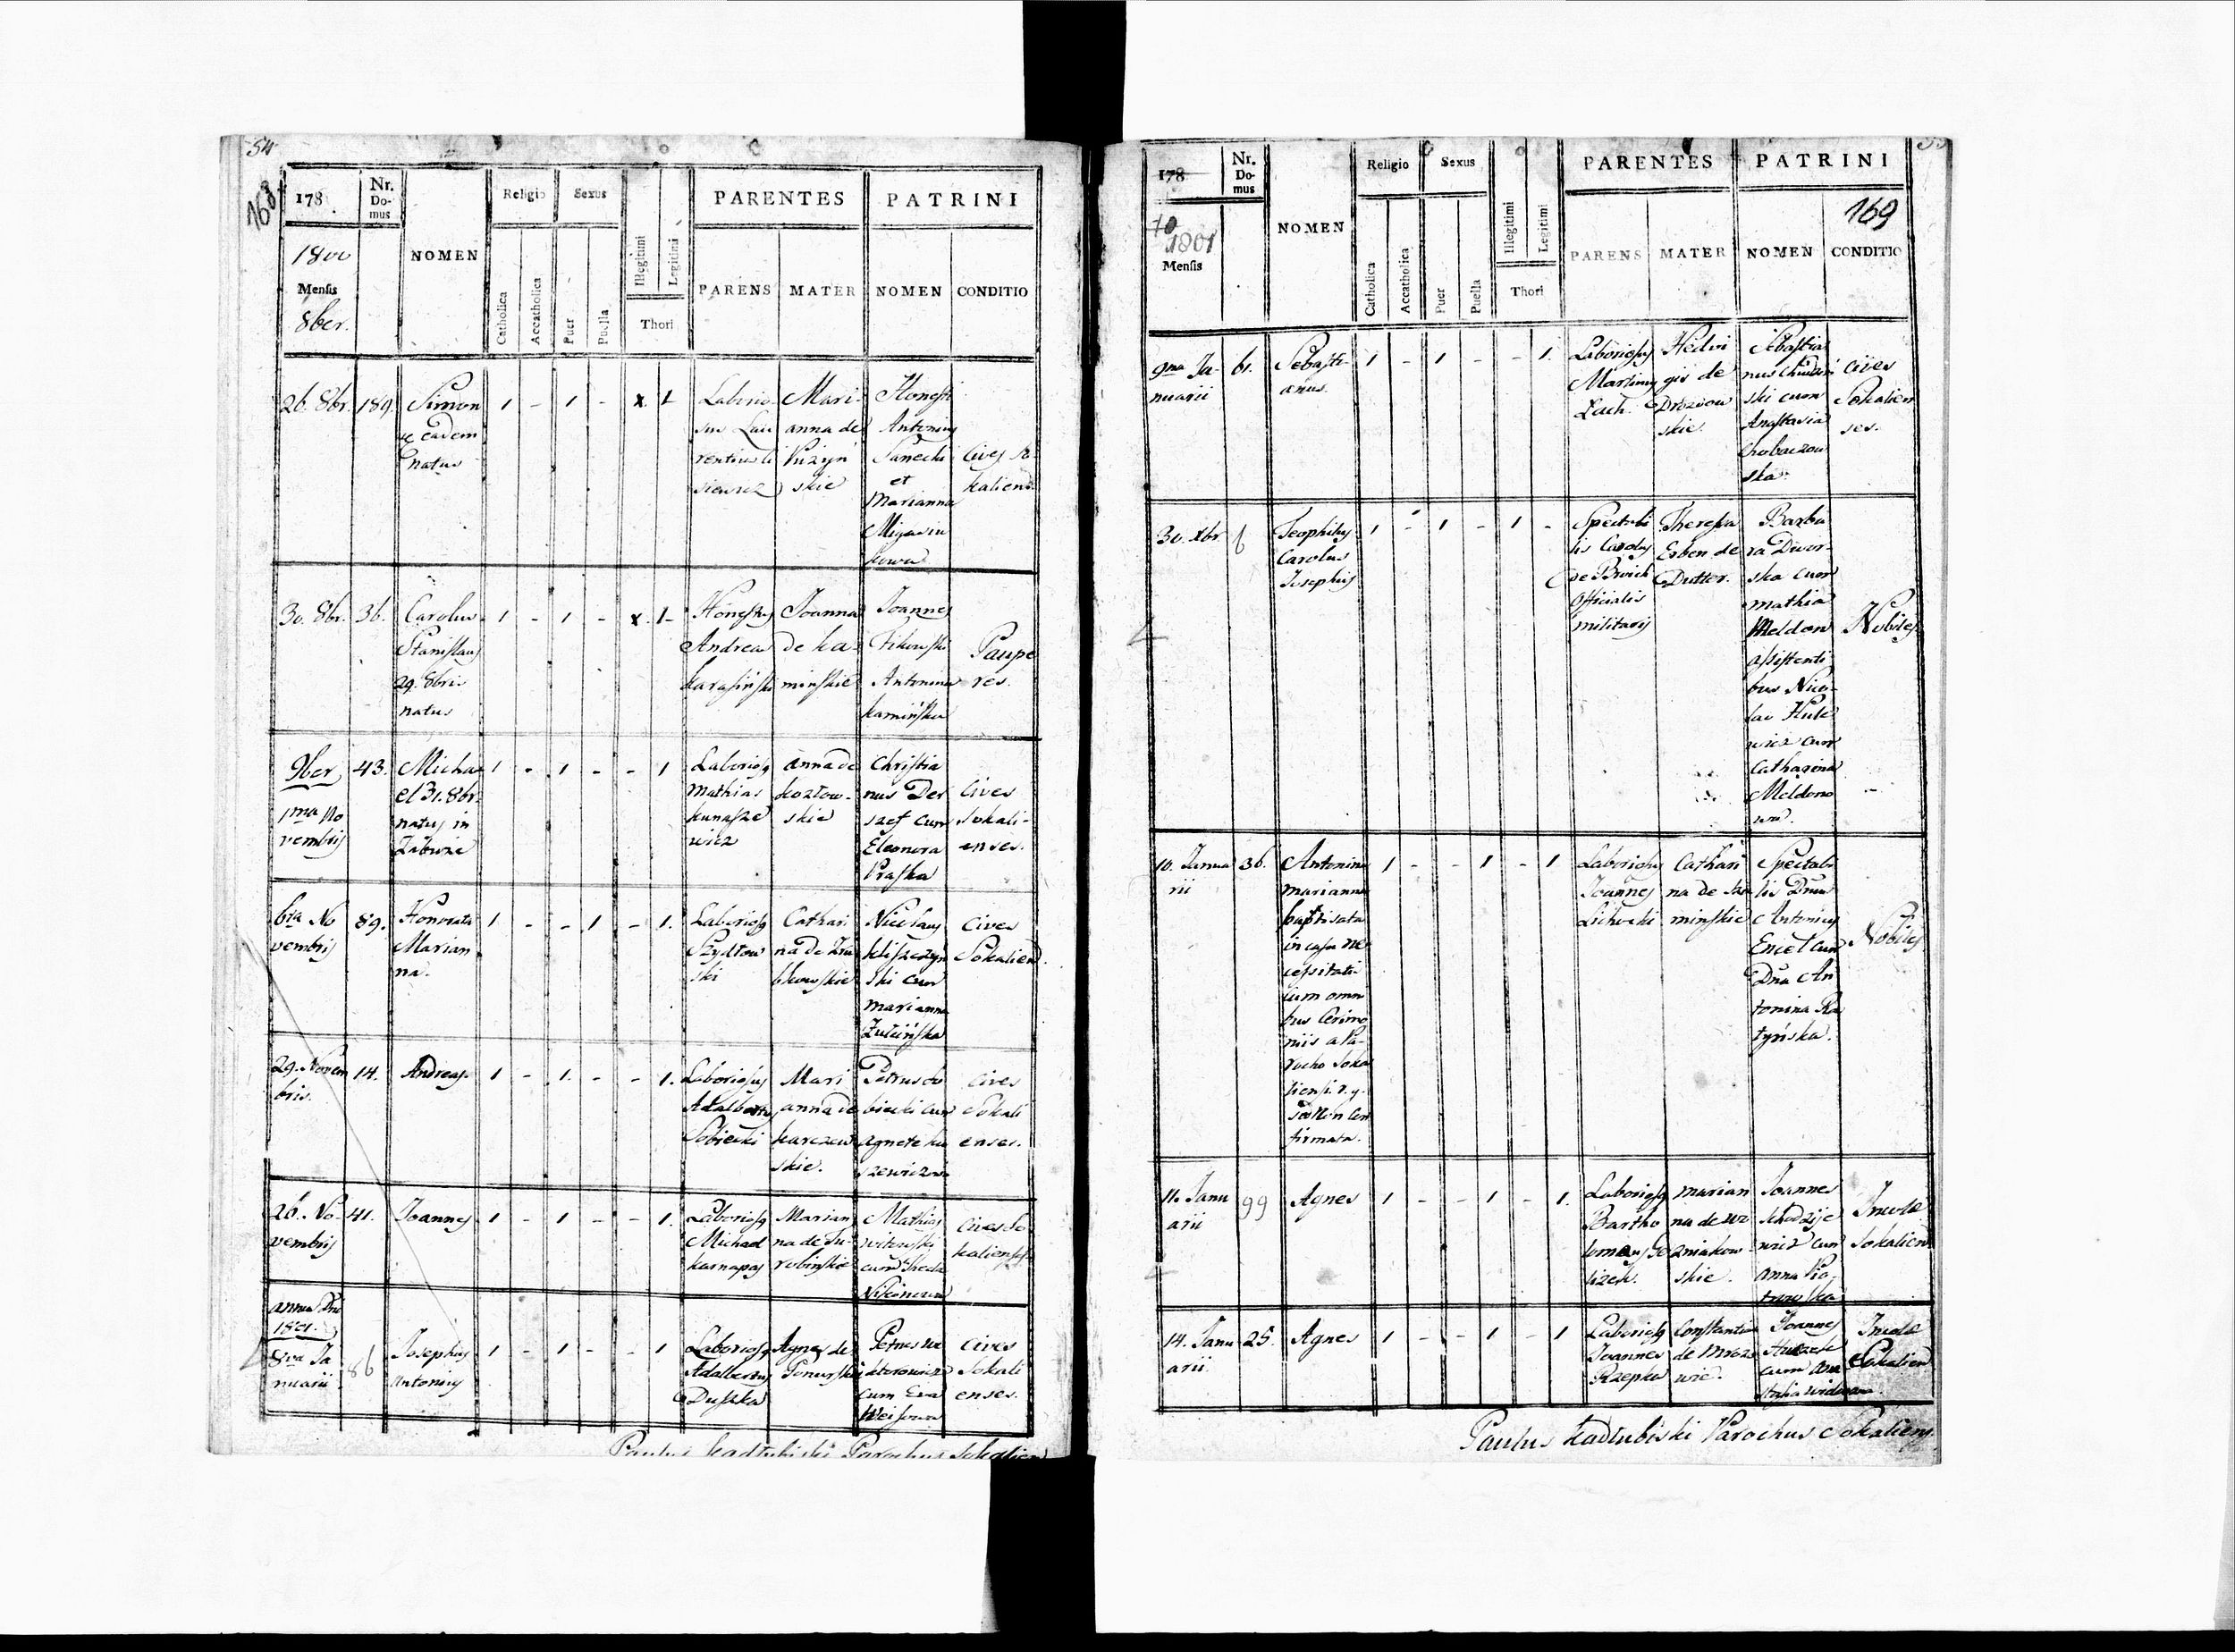 54
168
178
Nr.
Do-
mus
NOMEN
Religio
Sexus
Catholica
Accatholica
Puer
Puella
Illegitimi
Legitimi
Thori
PARENTES
PATRINI
PARENS
MATER
NOMEN
CONDITIO
1800
Mensis
8ber.
26. 8br.
189.
Simon
eadem
natus
1 - 1 - x. 1
Laborio-
sus Lau
rentius
siewicz
Mari-
anna de
skie
Honesti
Antonius
Sanecki
et
Marianna
Cives So-
kaliens.
30. 8br.
36.
Carolus
Stanislaus
29. 8bris
natus
1 - 1 - x. 1-
Honestus
Andreas
Karasiński
Joanna
de Ka-
minskie
Joannes
Antonina
Kamińska
Paupe
res.
9ber
1ma No
vembris
43.
Micha
el 31. 8br.
natus in
Zabuze
1 - 1 - - 1
Laboriosus
Mathias
Kunasze
wicz
Anna de
Kozlow-
skie
Christia
nus Der
szef cum
Eleonora
Praska
Cives
Sokali-
enses.
6ta No
vembris
89.
Honorata
Marian
na.
1 - - 1 - 1.
Laboriosus
Szydłow
ski
Cathari
na de
Nicolaus
Kliszczyn
ski cum
Marianna
Cives
Sokaliens.
29. Novem
bris.
14.
Andreas.
1 - 1. - - 1.
Laboriosus
Adalbertus
Sobiecki
Mari
anna de
Karczew
skie.
Petrus So
biecki cum
Agnete Ku
szewiczowa
Cives
Sokali
enses.
26. No-
vembris
41.
Joannes
1 - 1 - - 1.
Laboriosus
Michael
Karnapas
Marian
na de Su-
robinskie
Mathias
witowski
cum
Cives So
kalienses
Anno Dni
1801.
8va Ja
nuarii
86
Josephus
Antonius
1 - 1 - - 1
Laboriosus
Adalbertus
Duszka
Agnes de
Petrus
cum Eva
Weisowa
Cives
Sokali
enses.
Paulus Kadłubiski Parochus Sokaliens
178
Nr.
Do-
mus
NOMEN
Religio
Sexus
Catholica
Accatholica
Puer
Puella
Illegitimi
Legitimi
Thori
PARENTES
PATRINI
169
PARENS
MATER
NOMEN
CONDITIO
1801
Mensis
9na Ja-
nuarii
61.
Sebasti-
anus.
1 - 1 - - 1.
Laboriosus
Martinus
Lach.
Hedvi
gis de
Drozdow
skie.
Sebastia
nus
ski cum
Anastasia
Chobaczow
ska.
Cives
Sokalien
ses.
30. Xbr.
6
Teophilus
Carolus
Josephus
1 - 1 - 1 -
Spectabi
lis Carolus
de
Officialis
militaris
Theressa
Erben de
Dutter.
Barba
ra Dwor-
ska cum
Mathia
Meldon
assistenti
bus Nico-
lao Hule
wicz cum
Catharina
Meldono
wa.
Nobiles
10. Janua
rii
36.
Antonina
Marianna
baptisata
in casu ne
cessitatis
cum omni
bus Cerimo
niis a Pa-
rocho Soka
liensi. r. g.
Con
firmata.
1 - - 1 - 1
Laboriosus
Joannes
Lichocki
Cathari
na de Ka
minskie
Spectabi
lis Dnus
Antonius
Encet cum
Dna An
tonina Ra
tyńska.
Nobiles
11. Janu
arii
99
Agnes
1 - - 1 - 1.
Laboriosus
Bartho
lomaeus
lizek.
Marian
na de Wo
zniakow
skie.
Joannes
Schodzije
wicz cum
Anna Pio-
trowska
Incolae
Sokaliens
14. Janu
arii.
25.
Agnes
1 - - 1 - 1
Laboriosus
Joannes
Rzepka
Constantia
de Mroze
wie.
Joannes
cum Ana
stasia
Incolae
Sokaliens
Paulus Kadłubiski Parochus Sokaliens